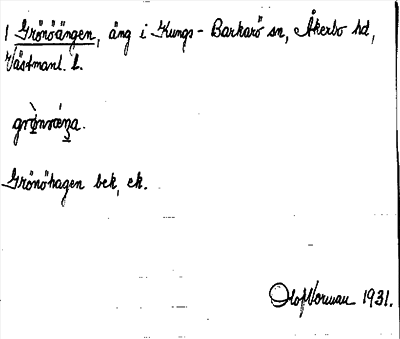 1 Grönöängen, äng i Kungs-Barkarö sn, Åkerbo hd,
Västmanl. l.
Grönöhagen bek, ek.
Olof Vorman 1931.